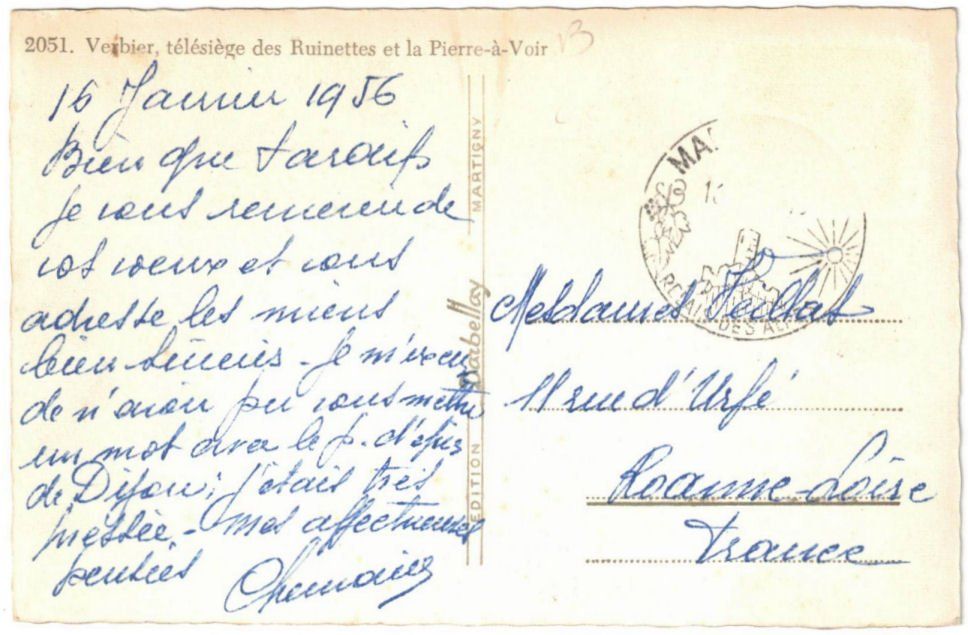 2051. Verbier, télésiège des Ruinettes et la Pierre-à-Voir
13
16 Janvier 1956
Bien que tardifs
je vous remercie de
vos voeux et vous
adresse les miens
bien sincères - Je m'excuse
de n'avoir pu vous mettre
un mot avec le p. d'épices
de Dijon; j'étais très
pressée. - mes affectueuses
pensées
EDITION Darbellay MARTIGNY
MA
DES ALP
Mesdames
11 rue d'Urfé
Roanne - Loire
France